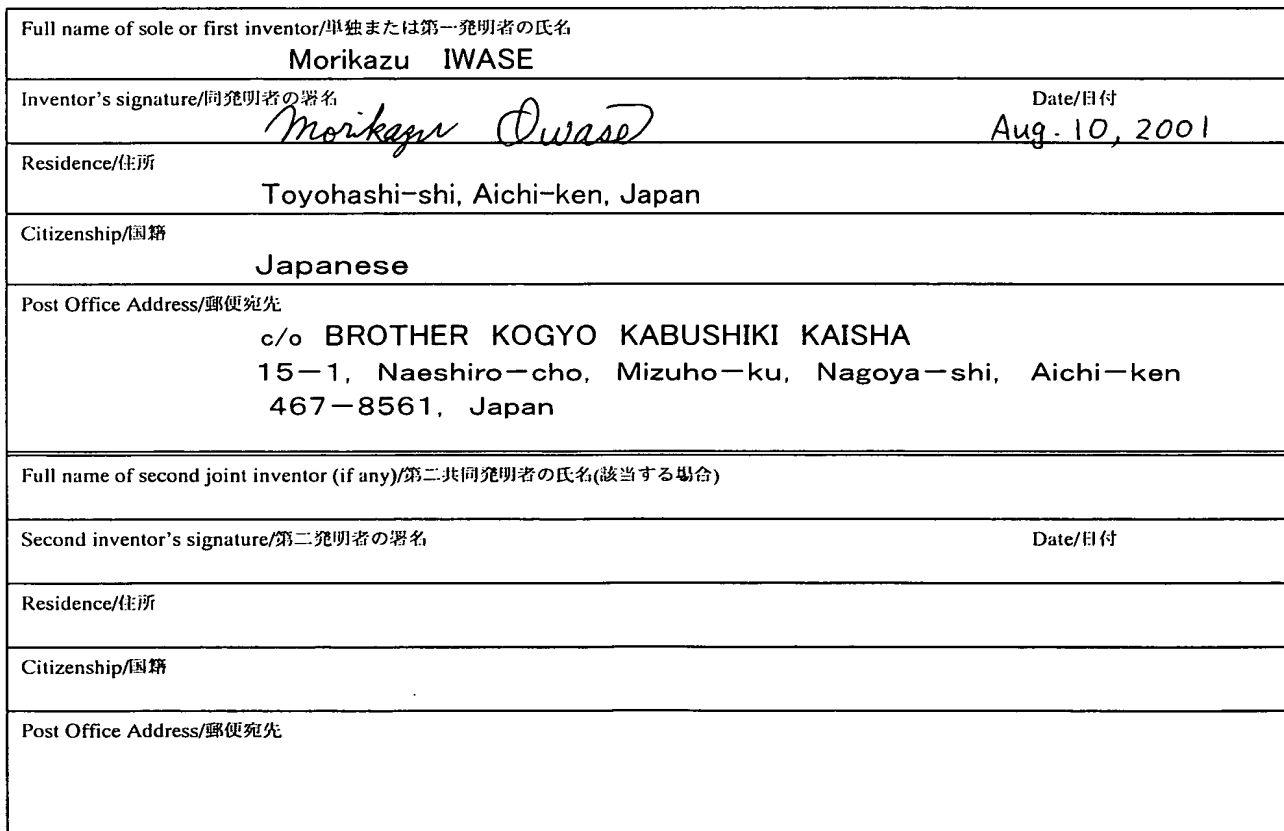 Full name of sole or first inventor/単独または第一発明者の氏名
Morikazu IWASE
Inventor's signature/同発明者の署名 Date/日付
Morikazu Iwase Aug. 10, 2001
Residence/住所
Toyohashi-shi, Aichi-ken, Japan
Citizenship/国籍
Japanese
Post Office Address/郵便宛先
c/o BROTHER KOGYO KABUSHIKI KAISHA
15-1, Naeshiro-cho, Mizuho-ku, Nagoya-shi, Aichi-ken
467-8561, Japan
Full name of second joint inventor (if any)/第二共同発明者の氏名(該当する場合)
Second inventor's signature/第二発明者の署名 Date/日付
Residence/住所
Citizenship/国籍
Post Office Address/郵便宛先